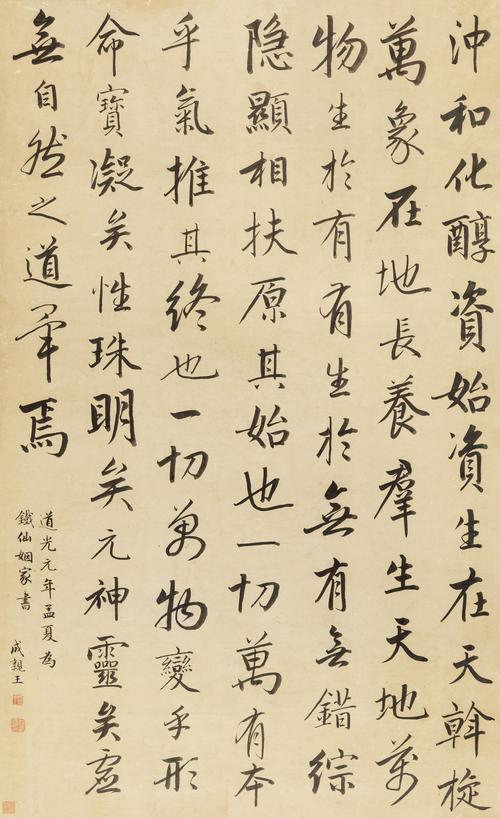 沖和化醇資始資生在天斡旋
萬象在地長養羣生天地萬
物生於有有生於無有無錯綜
隐顯相扶原其始也一切萬有本
乎氣推其終也一切万物變乎形
命寶凝矣性珠明矣元神靈矣虛
無自然之道畢焉
道光元年孟夏為
鐵仙姻家書
成親王